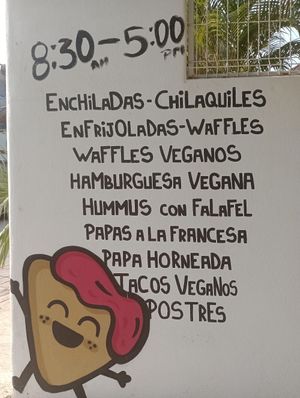 8:30AM-5:00PM
ENCHILADAS-CHILAQUILES
ENFRIJOLADAS-WAFFLES
WAFFLES VEGANOS
HAMBURGUESA VEGANA
HUMMUS CON FALAFEL
PAPAS A LA FRANCESA
PAPA HORNEADA
TACOS VEGANOS
POSTRES